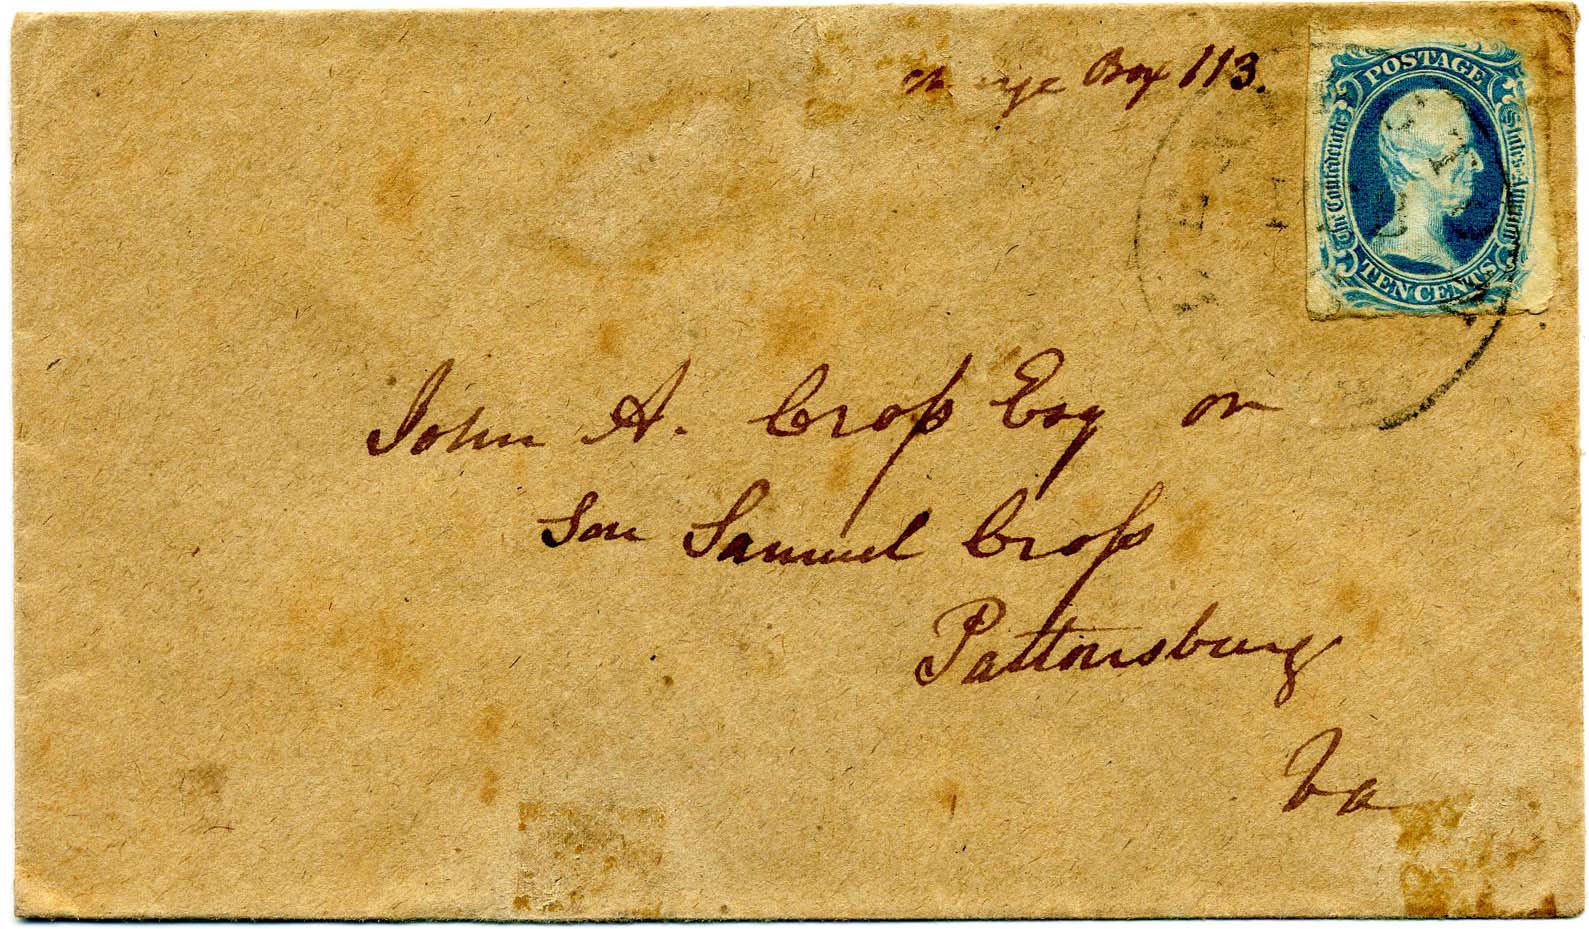 Charge Box 113.
POSTAGE
The Confederate States of America
TEN CENTS
John A. Cross Esq or
Son Samuel Cross
Pattonsburg
Va